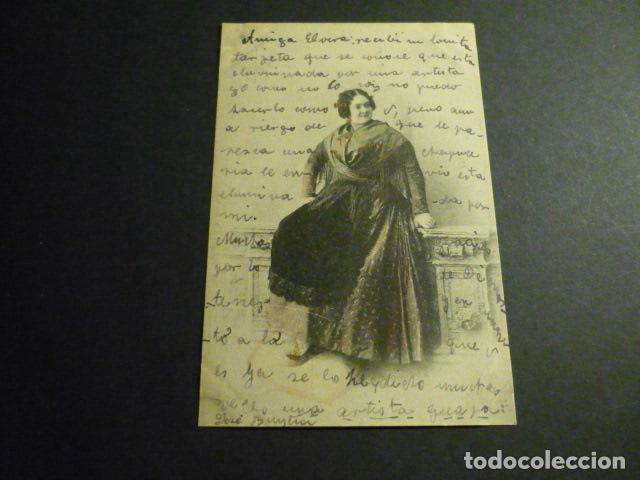 Amiga Elvira: recibí su bonita
tarjeta que se conoce que está
eluminada por una artista
yo como no lo soy no puedo
hacerlo como V, pero aun
a riesgo de que le pa-
resca una chapuce
ria le en vio esta
elumina da por
mi.
Muchas
por lo se
te
to a la que
es Ya se lo he dicho muchas
veces una artista guapa
José
todocoleccion.net